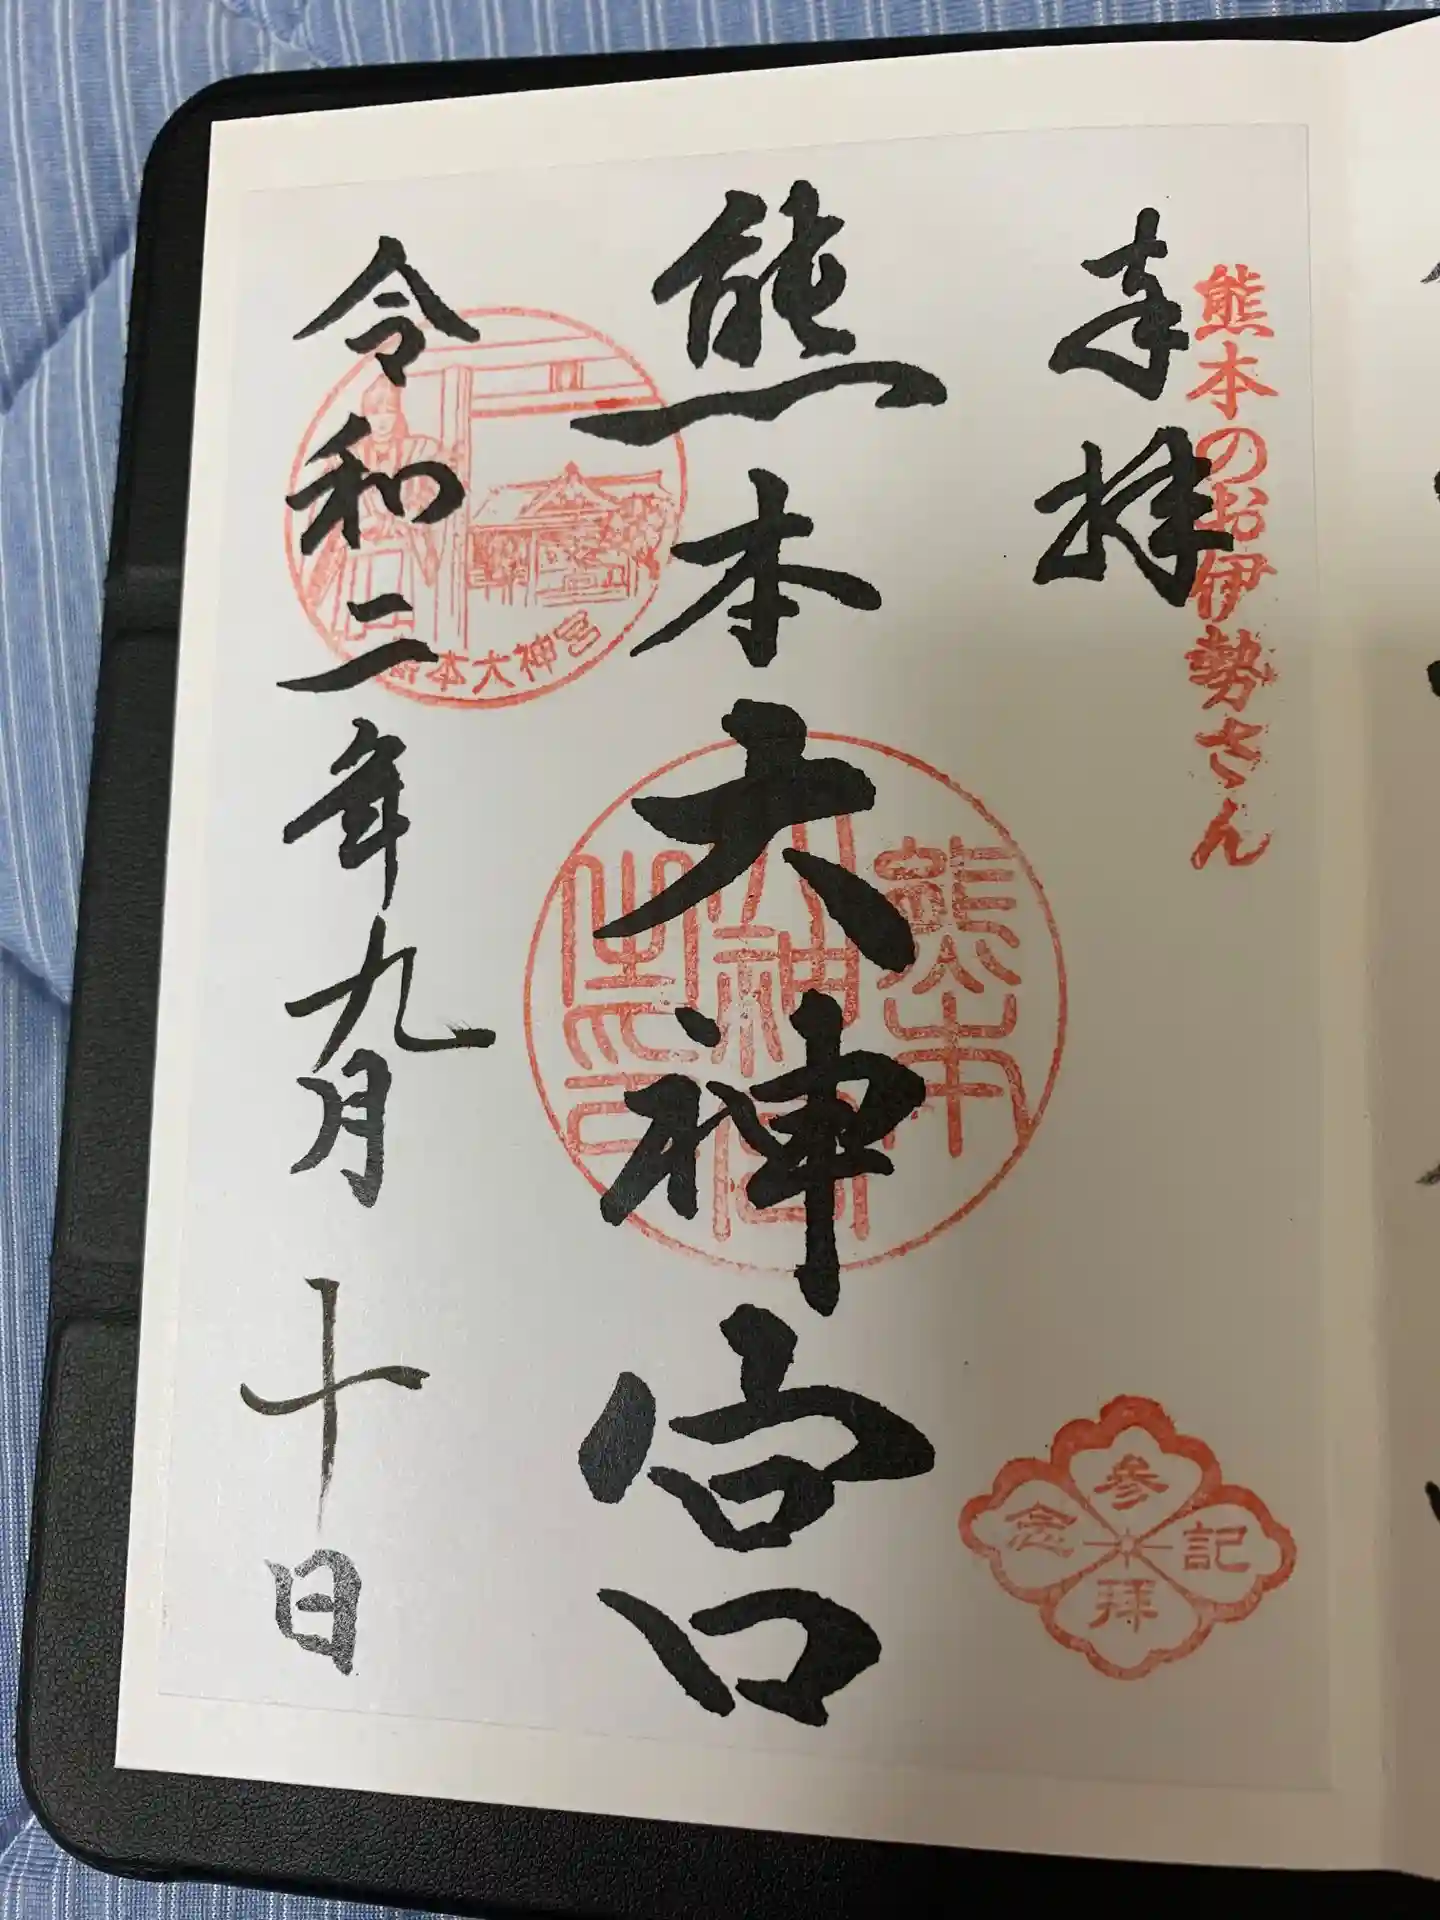 熊本のお伊勢さん
奉拝
熊本大神宮
熊本大神宮之印
熊本大神宮
令和二年九月十日
参拝記念